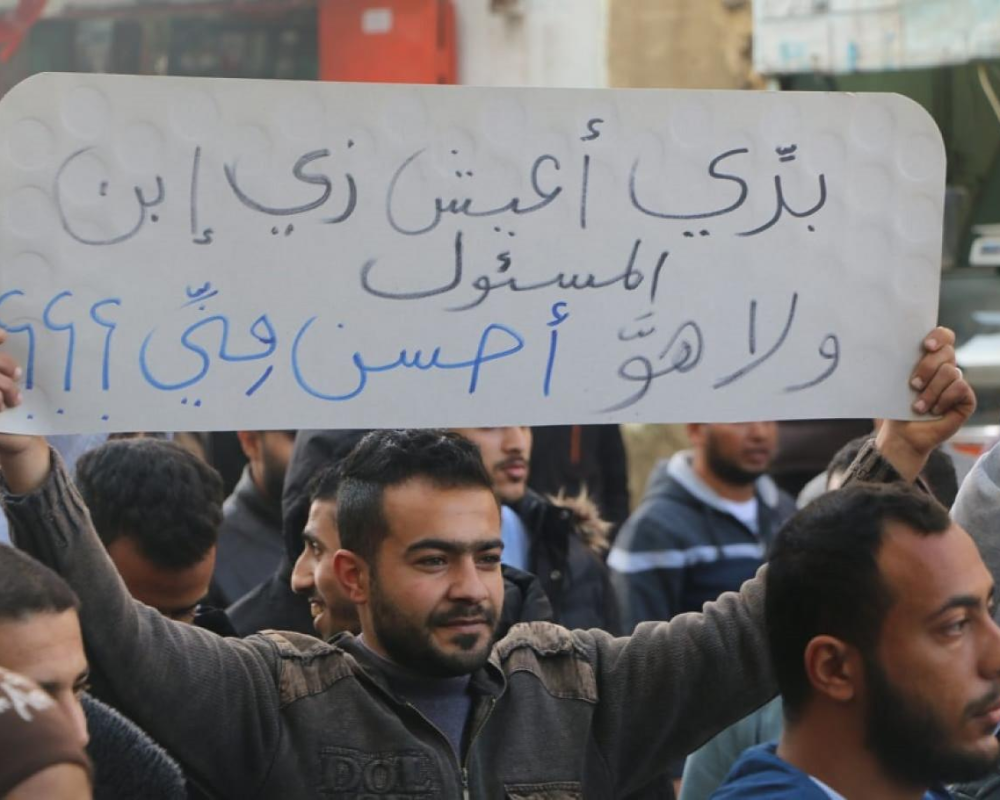 بدِّي أعيش زي إبن
المسئول
ولا هوَّ أحسن مِنِّي ؟؟؟
DOL